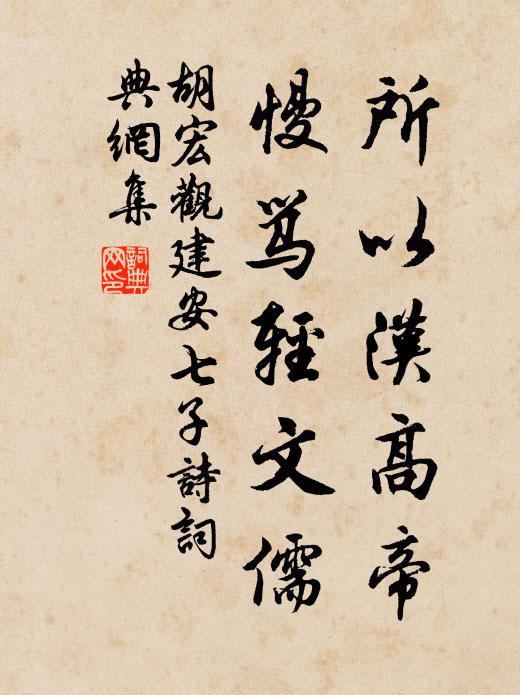 所以漢高帝
慢罵輕文儒
胡宏觀建安七子詩詞
典網集
詞典
网印